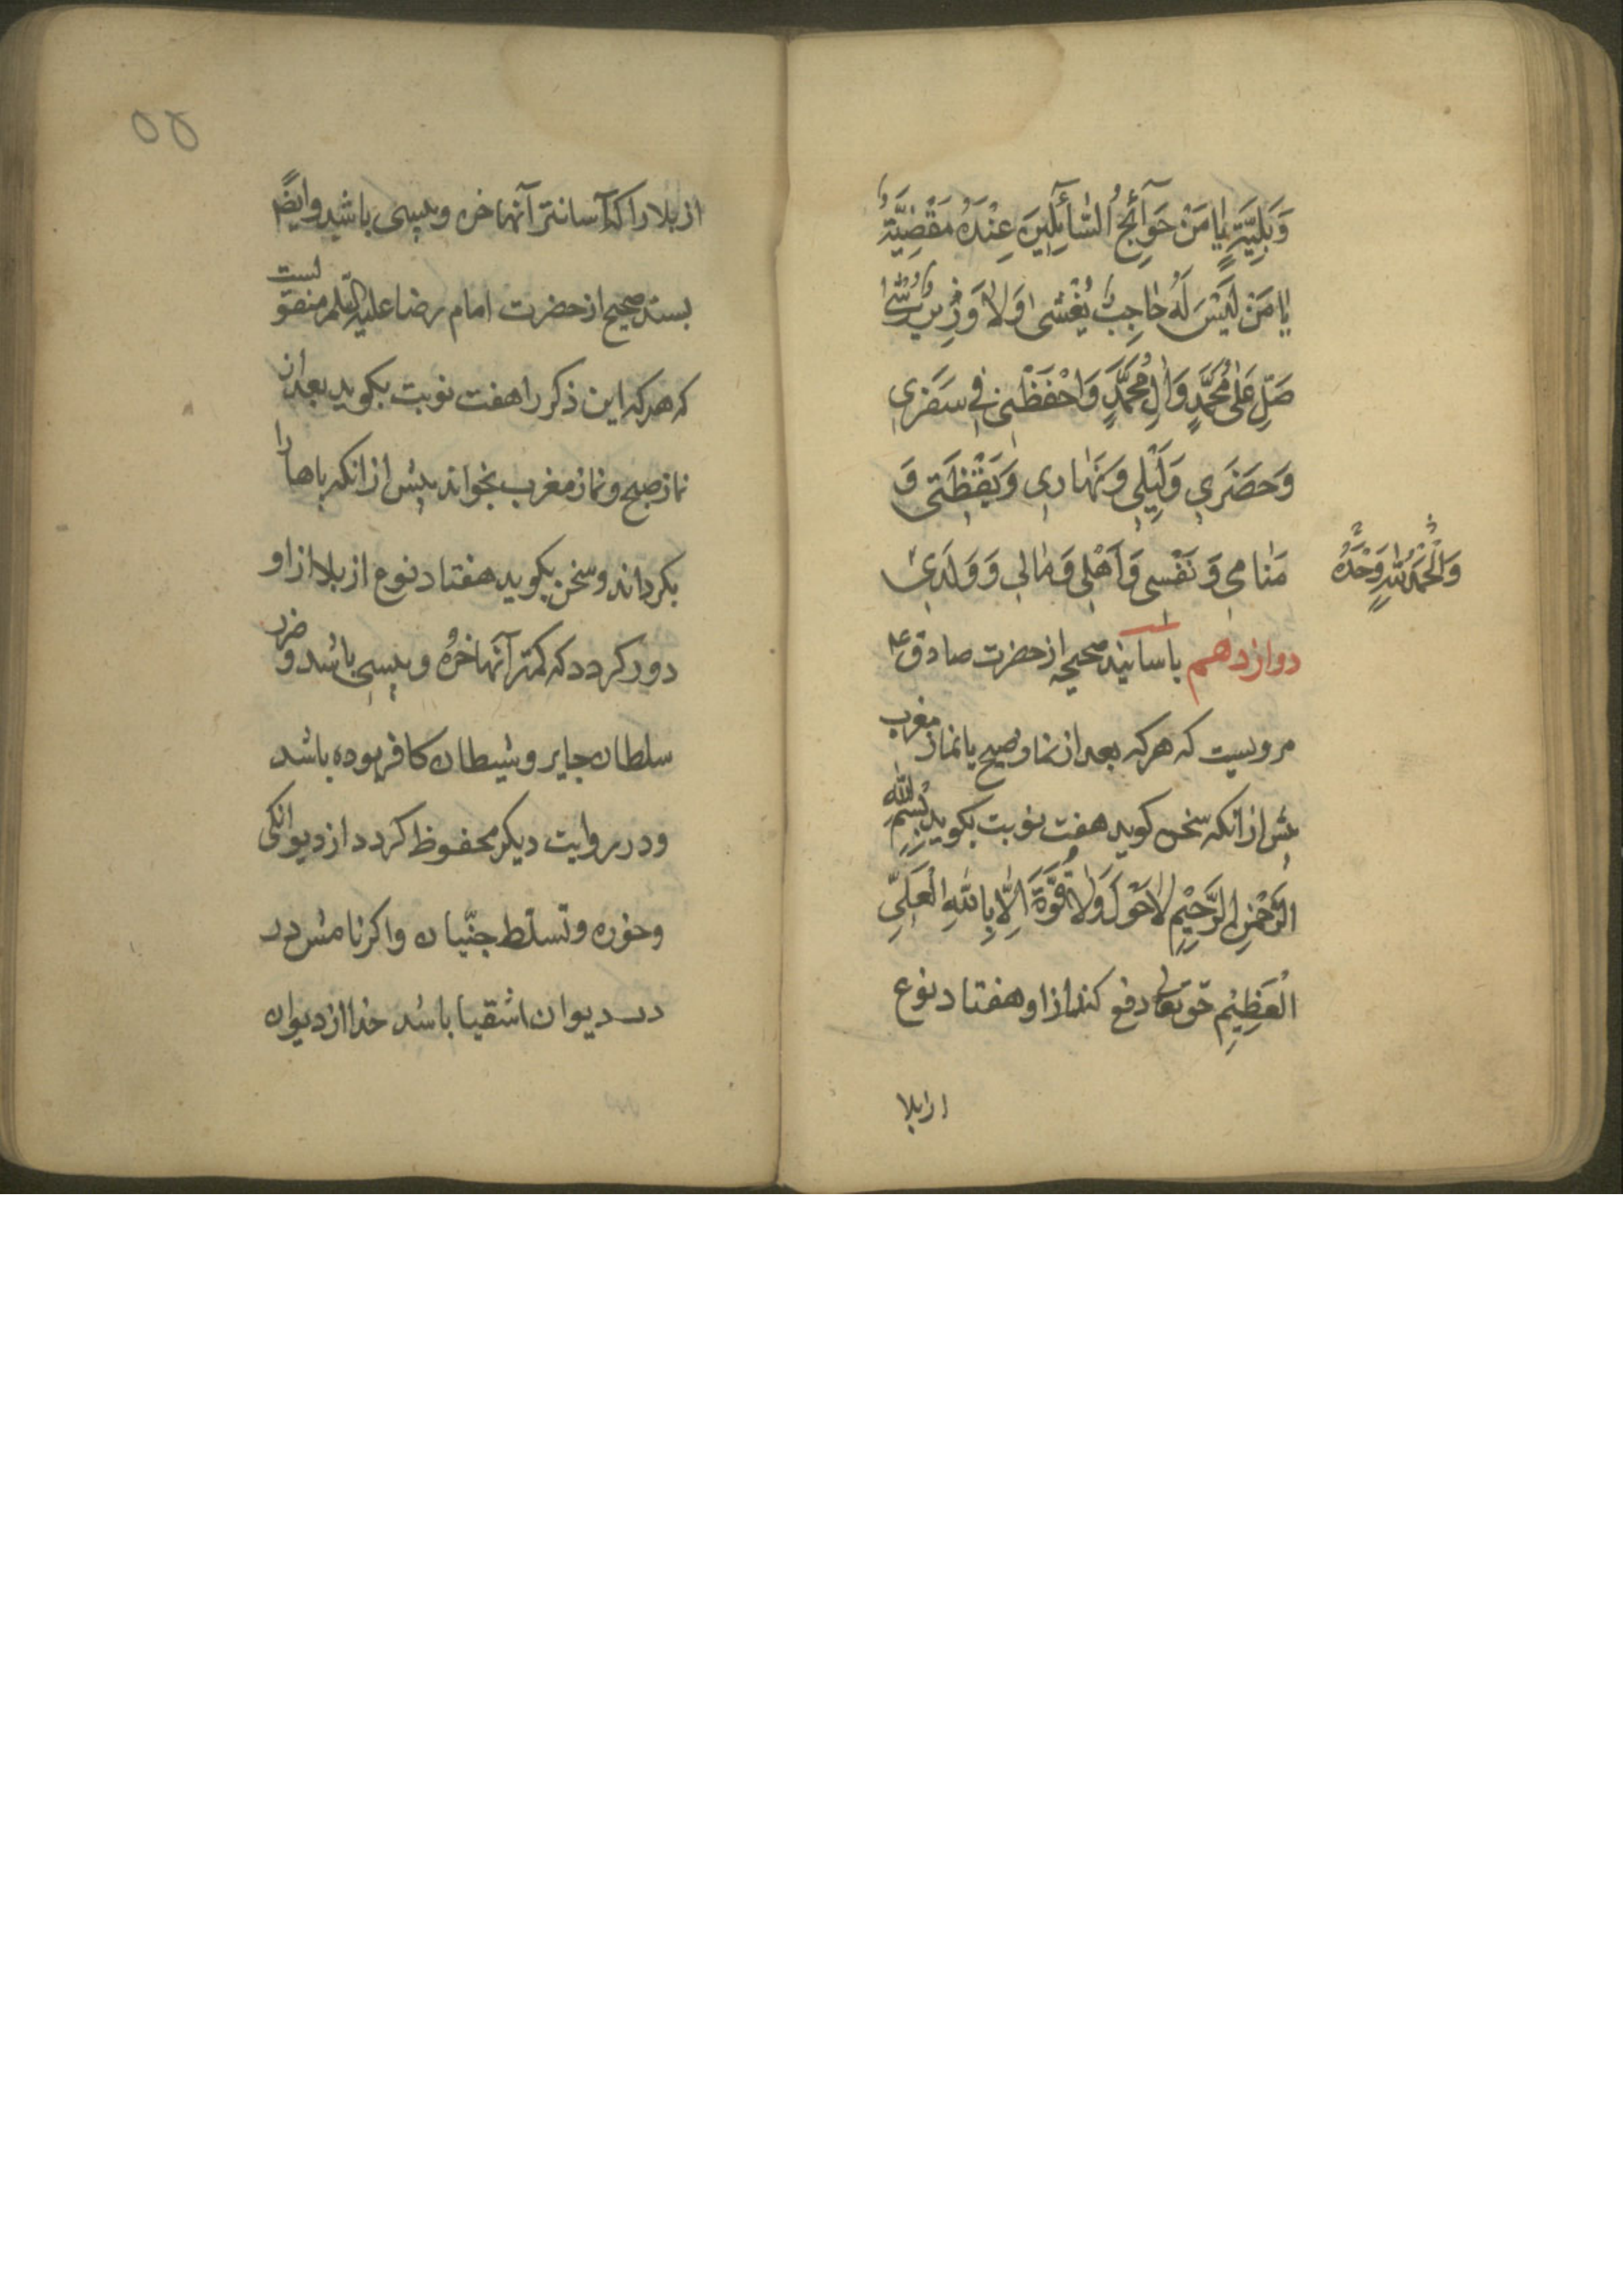 وَبَلِيَّةٍ يٰا مَنْ حَوٰآئِجُ السّٰآئِلِينَ عِنْدَهُ مَقْضِيَّةٌ
يٰا مَنْ لَيْسَ لَهُ حٰاجِبٌ يُغْشىٰ وَلٰا وَزِيرٌ يُرْشىٰ
صَلِّ عَلىٰ مُحَمَّدٍ وَاٰلِ مُحَمَّدٍ وَاحْفَظْنِي فِي سَفَرِي
وَحَضَرِي وَلَيْلِي وَنَهٰارِي وَيَقْظَتِي وَ
مَنٰامِي وَنَفْسِي وَاَهْلِي وَمٰالِي وَوَلَدِي
وَالْحَمْدُ لِلّٰهِ وَحْدَهُ
دوازدهم باسانید صحیحه از حضرت صادق ع
مرویست که هرکه بعد از نماز صبح یا نماز مغرب
پیش از انکه سخن کوید هفت نوبت بکوید بِسْمِ اللّٰهِ
الرَّحْمٰنِ الرَّحِيمِ لٰا حَوْلَ وَلٰا قُوَّةَ اِلّٰا بِاللّٰهِ الْعَلِيِّ
الْعَظِيمِ حق تعالی دفع کند از او هفتاد نوع
از بلا
۵۵
از بلا را که آسانتر آنها خوره و پیسی باشد وایضًا
بسند صحیح از حضرت امام رضا علیه السّلم منقولست
که هرکه این ذکر را هفت نوبت بکوید بعد از
نماز صبح و نماز مغرب بخواند پیش از انکه پاها را
بکرداند و سخن بکوید هفتاد نوع از بلا از او
دور کردد که کمتر آنها خوره و پیسی باشد و ضرر
سلطان جایر و شیطان کافر بوده باشد
و در روایت دیکر محفوظ کردد از دیوانکی
و خوره و تسلط جنّیان و اکر نامش در
در دیوان اشقیا باشد خدا از دیوان